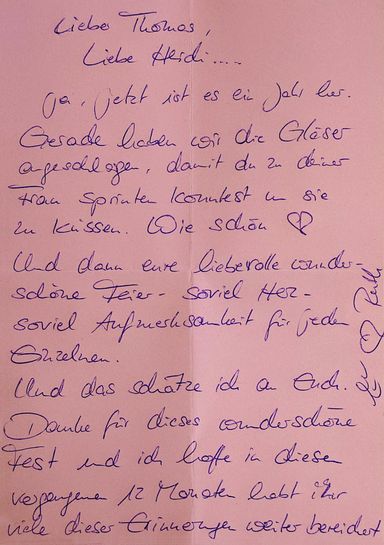 Lieber Thomas,
Liebe Heidi....
ja, jetzt ist es ein Jahr her.
Gerade haben wir die Gläser
angeschlagen, damit du zu deiner
Frau sprinten konntest um sie
zu küssen. Wie schön ♡
Und dann eure liebevolle wunder-
schöne Feier - soviel Herz -
soviel Aufmerksamkeit für jeden
Einzelnen.
Und das schätze ich an Euch.
Danke für dieses wunderschöne
Fest und ich hoffe in diesen
vergangenen 12 Monaten habt ihr
viele dieser Erinnerungen weiter bereichert